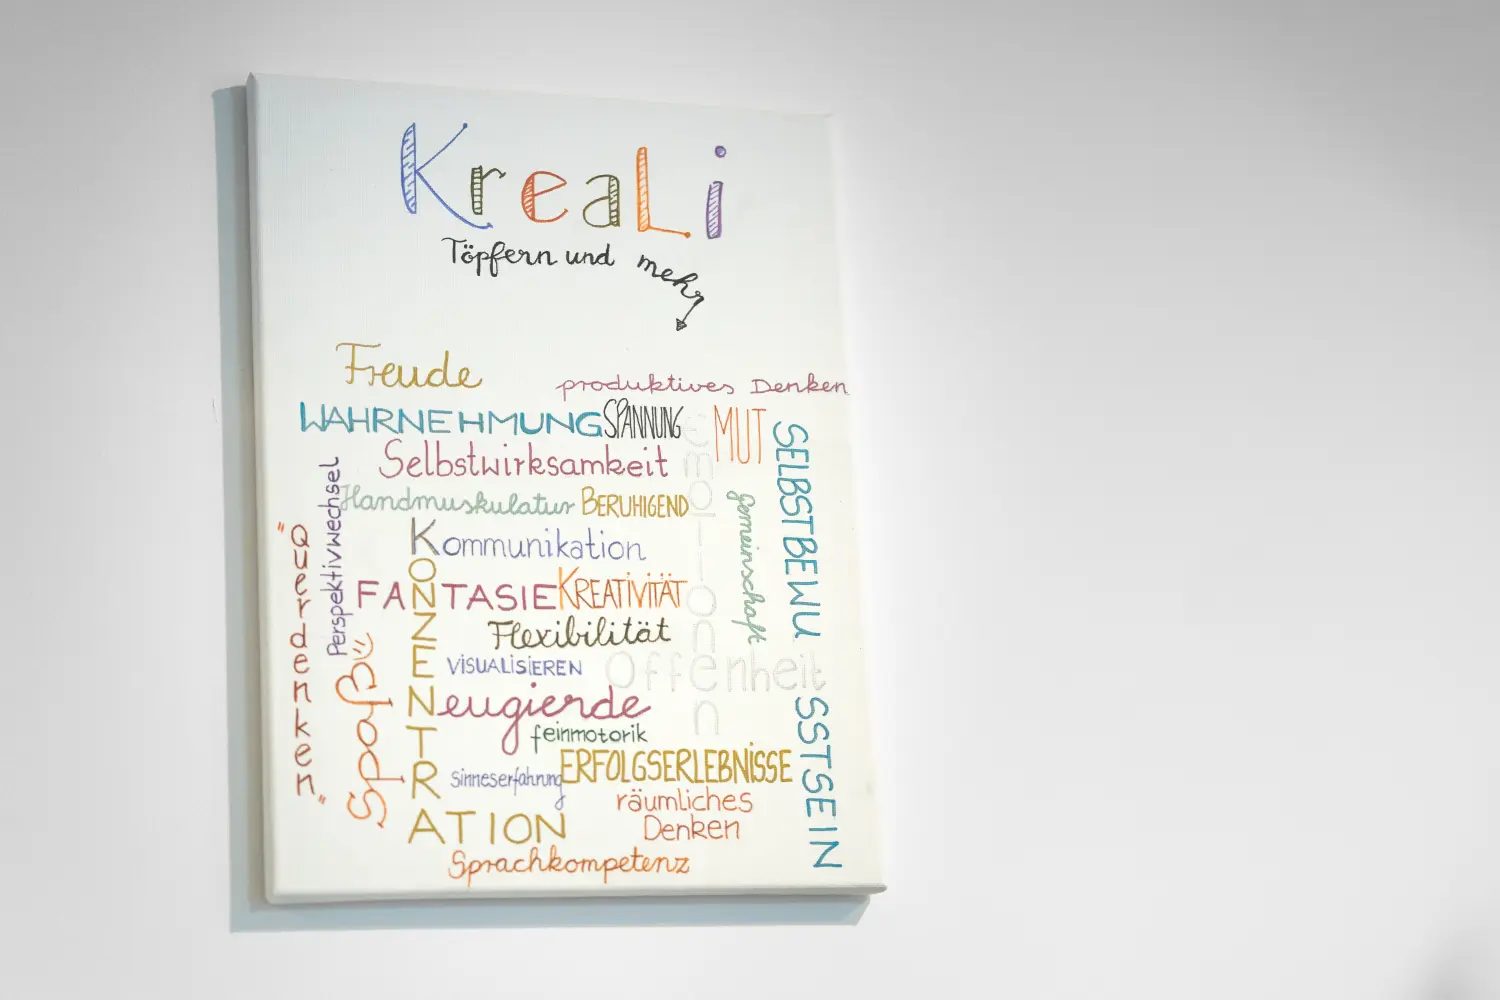 KreaLi
Töpfern und mehr
Freude
produktives Denken
WAHRNEHMUNG
SPANNUNG
Emotionen
MUT
SELBSTBEWUSSTSEIN
Selbstwirksamkeit
Perspektivwechsel
Handmuskulatur
BERUHIGEND
gemeinschaft
"Querdenken"
KONZENTRATION
Kommunikation
FANTASIE
KREATIVITÄT
Flexibilität
Spaß
VISUALISIEREN
Offenheit
Neugierde
feinmotorik
ERFOLGSERLEBNISSE
Sinneserfahrung
räumliches
Denken
Sprachkompetenz